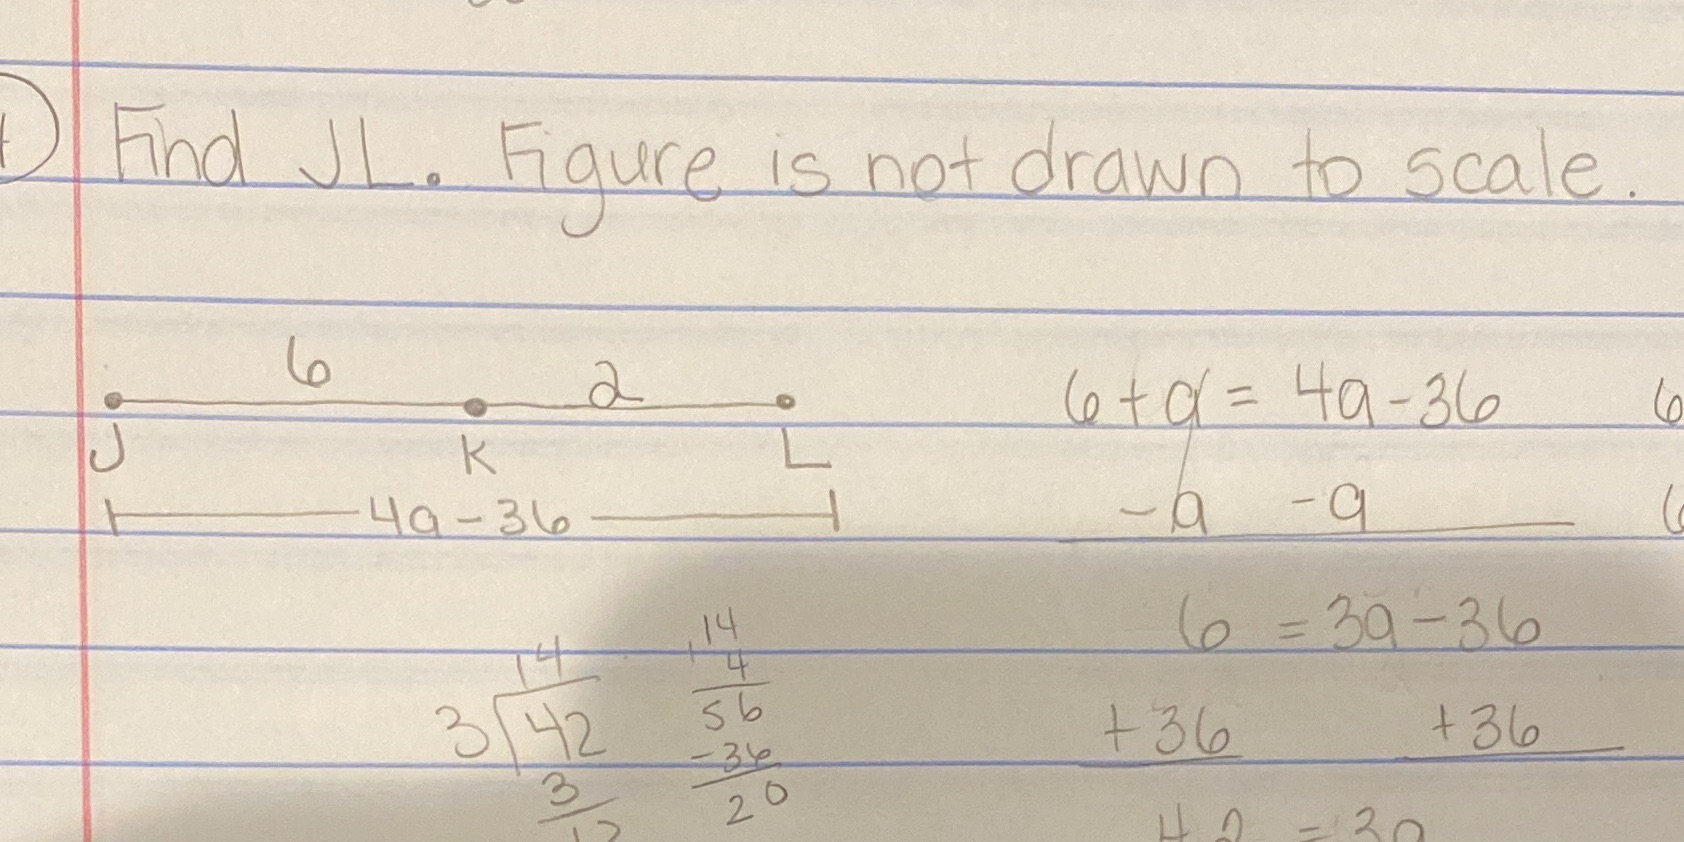 Find JL. Figure is not drawn to scale.
6 2
J K L
4a-36
6+a = 4a-36
-a -a
6 = 3a-36
+36 +36
42 = 3a
14
3 42
3
12
14
4
56
-36
20
6